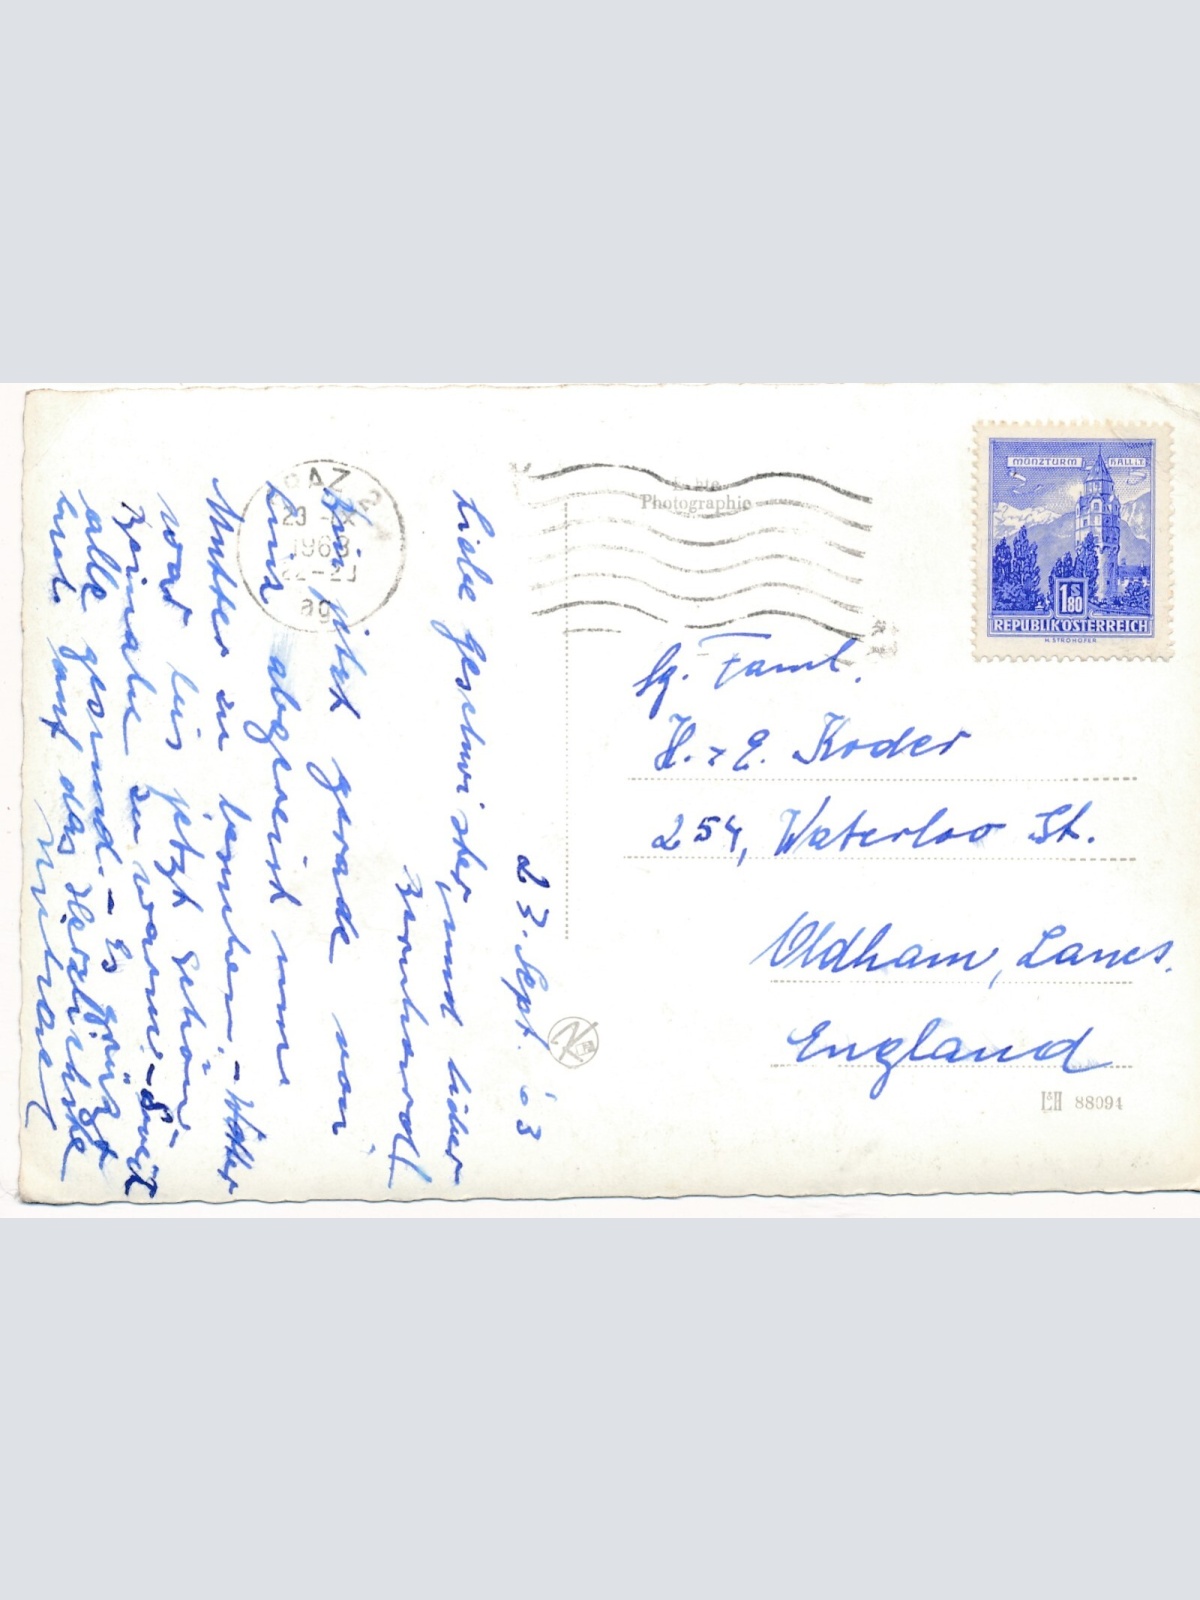 23. Sept. 63
Liebe Geschwister, und lieber
Bernhard!
Bin jetzt gerade von
Linz abgereist um
Mutter zu besuchen. - Wetter
war bis jetzt schön
beinahe zu warm. - Soweit
alle gesund. - Es grüßt
Euch samt das Herzlichste
GRAZ 2
23. IX
1963
22-23
ag
Echte
Photographie
MÜNZTURM HALL i.T.
1 S 80
REPUBLIK ÖSTERREICH
H. STROHOFER
Fam.
H. & E. Koder
254, Waterloo St.
Oldham, Lancs.
England
88094
K